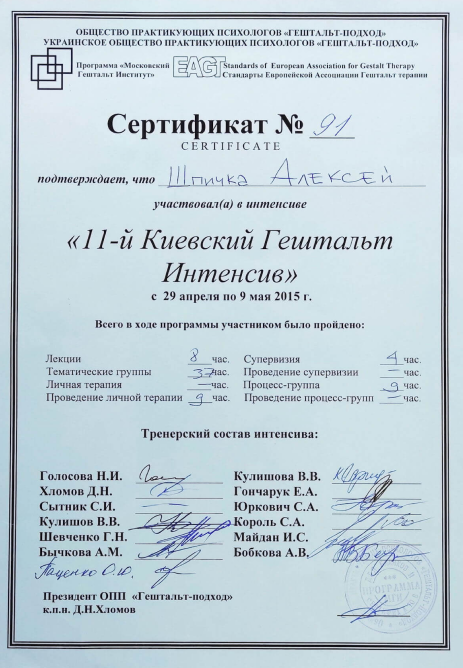 ОБЩЕСТВО ПРАКТИКУЮЩИХ ПСИХОЛОГОВ «ГЕШТАЛЬТ-ПОДХОД»
УКРАИНСКОЕ ОБЩЕСТВО ПРАКТИКУЮЩИХ ПСИХОЛОГОВ «ГЕШТАЛЬТ-ПОДХОД»
Программа «Московский Гештальт Институт»
EAGT Standards of European Association for Gestalt Therapy
Стандарты Европейской Ассоциации Гештальт терапии
Сертификат № 91
CERTIFICATE
подтверждает, что Шпичка Алексей
участвовал(а) в интенсиве
«11-й Киевский Гештальт
Интенсив»
с 29 апреля по 9 мая 2015 г.
Всего в ходе программы участником было пройдено:
Лекции 8 час. Супервизия 4 час.
Тематические группы 37 час. Проведение супервизии — час.
Личная терапия — час. Процесс-группа 9 час.
Проведение личной терапии 9 час. Проведение процесс-групп — час.
Тренерский состав интенсива:
Голосова Н.И. Кулишова В.В.
Хломов Д.Н. Гончарук Е.А.
Сытник С.И. Юркович С.А.
Кулишов В.В. Король С.А.
Шевченко Г.Н. Майдан И.С.
Бычкова А.М. Бобкова А.В,
Паценко О.Ю.
Президент ОПП «Гештальт-подход»
к.п.н. Д.Н.Хломов